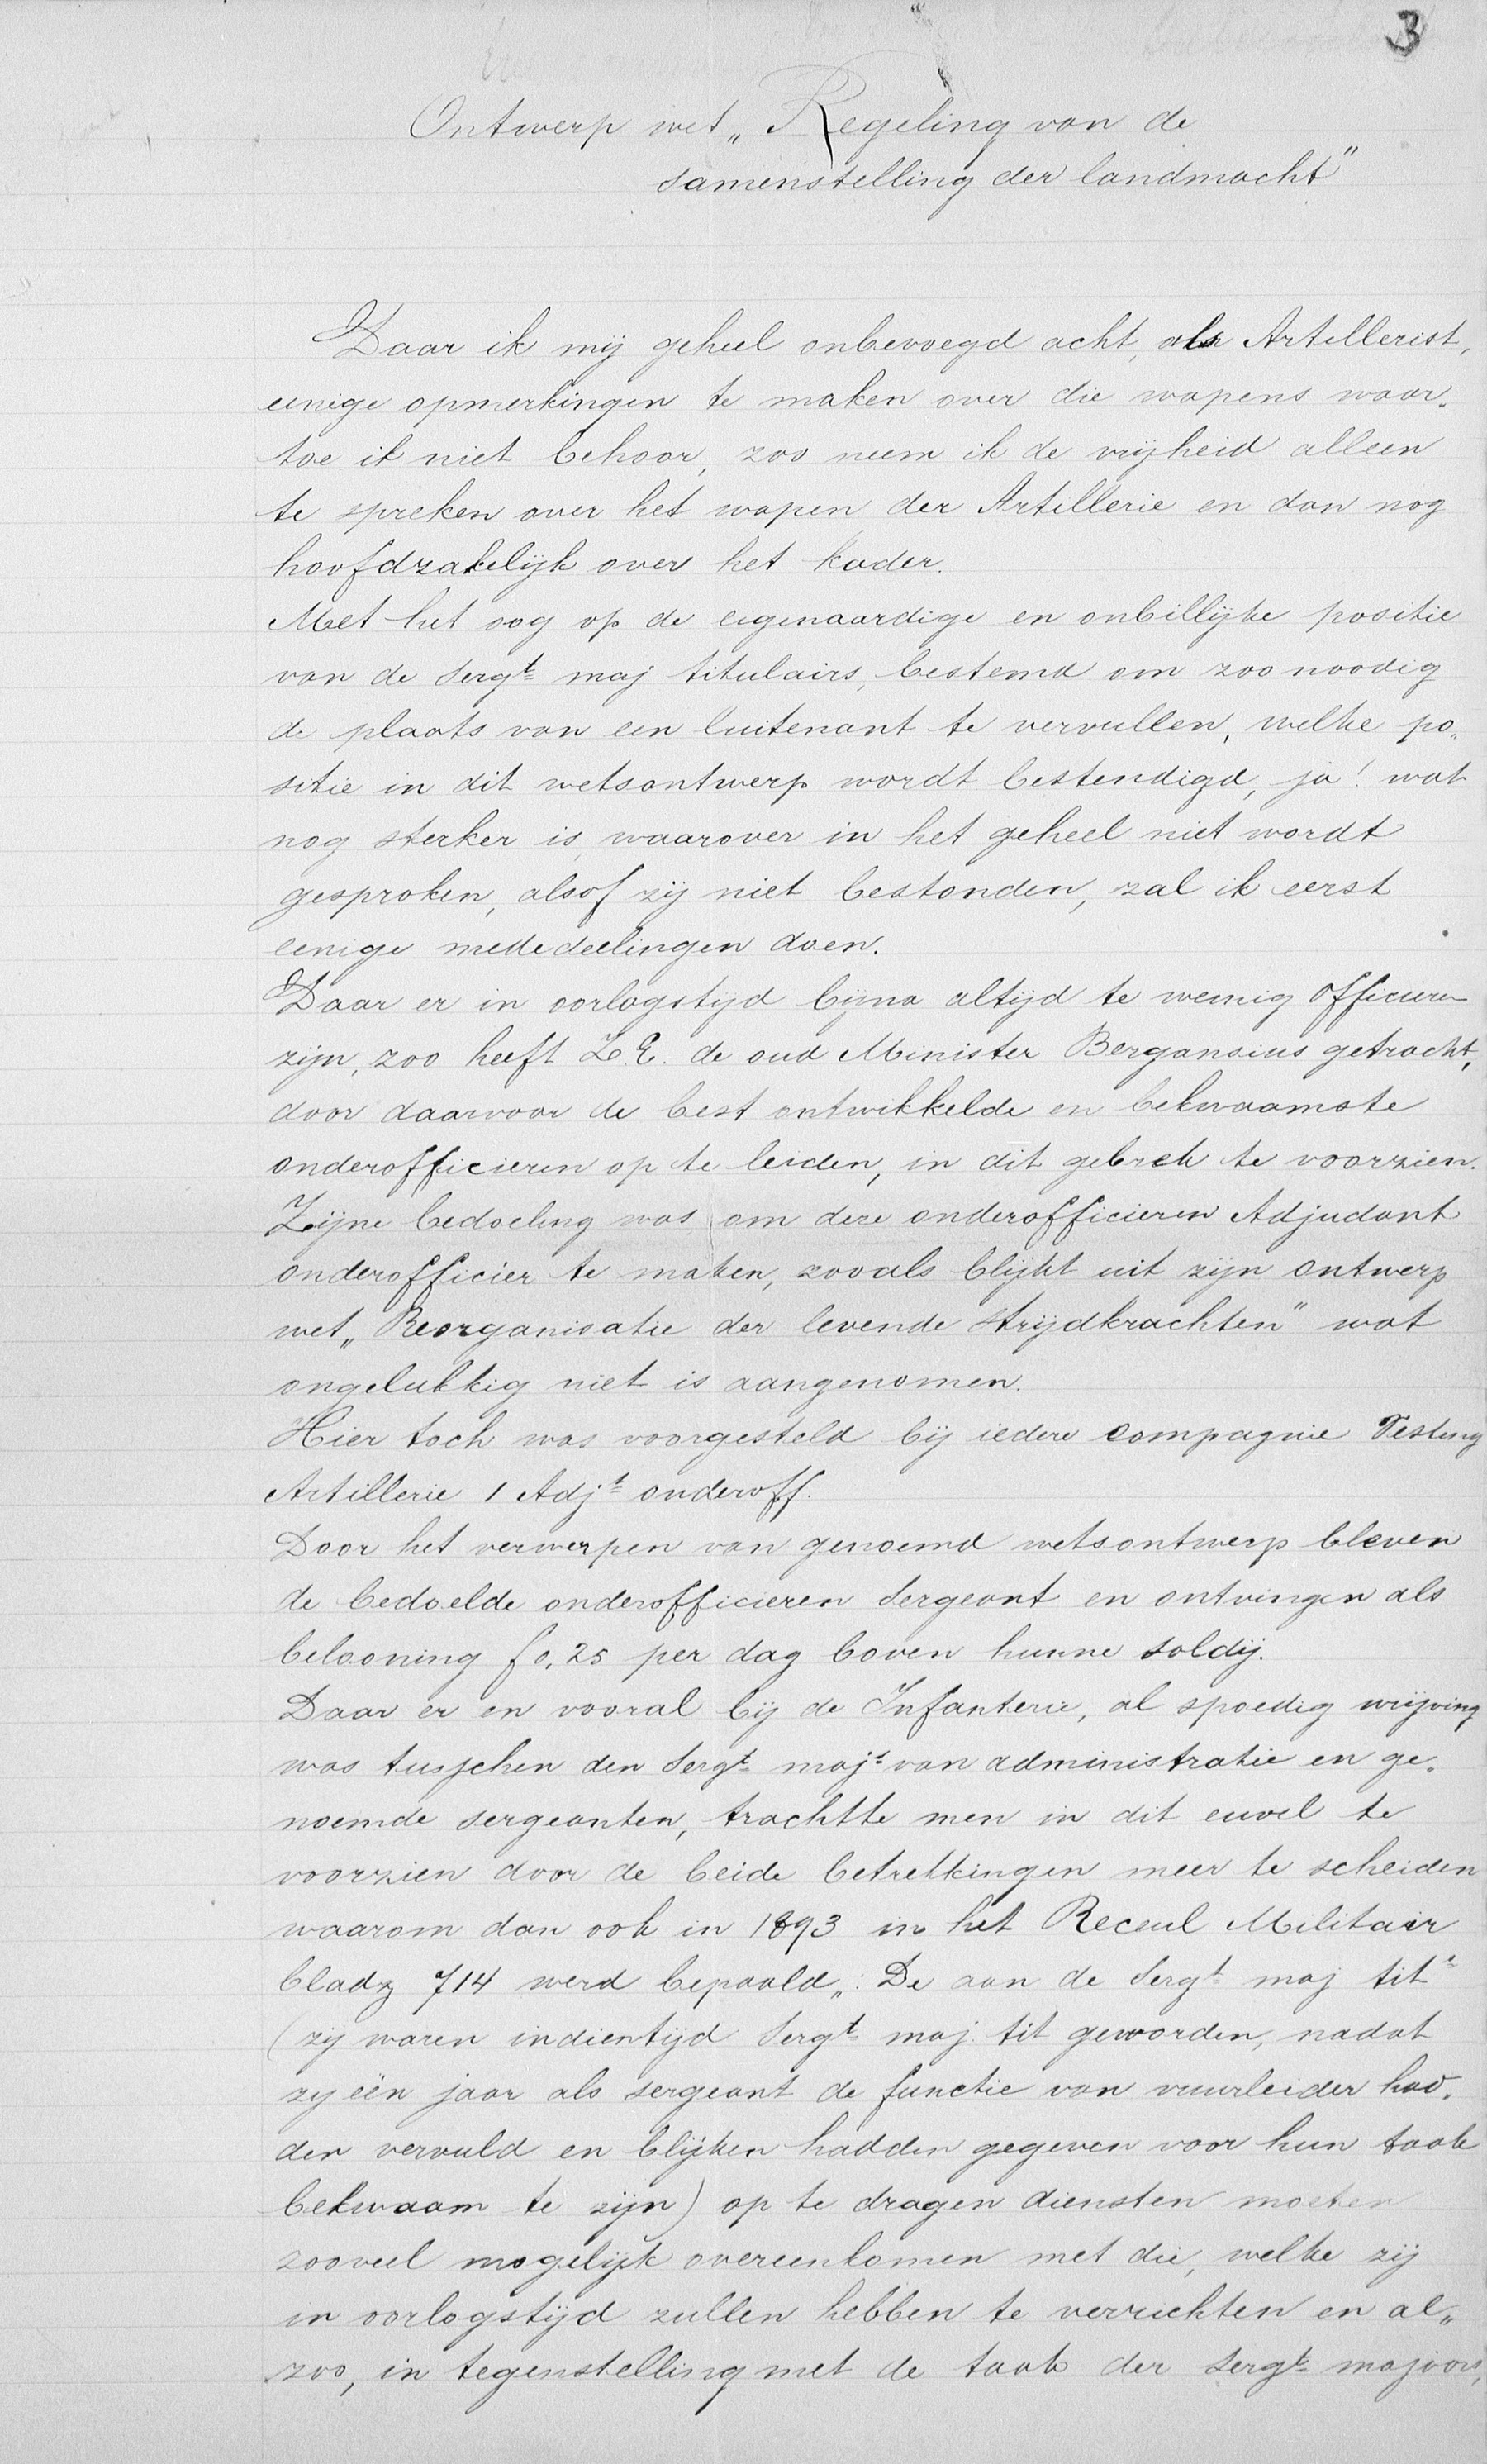 3
Ontwerp wet „Regeling van de
samenstelling der landmacht"
Daar ik mij geheel onbevoegd acht, als Artillerist,
eenige opmerkingen te maken over die wapens waar„
toe ik niet behoor, zoo neem ik de vrijheid alleen
te spreken over het wapen der Artillerie en dan nog
hoofdzakelijk over het kader.
Met het oog op de eigenaardige en onbillijke positie
van de Sergt maj titulairs, bestemd om zoo noodig
de plaats van een luitenant te vervullen, welke po„
sitie in dit wetsontwerp wordt bestendigd, ja! wat
nog sterker is, waarover in het geheel niet wordt
gesproken, alsof zij niet bestonden, zal ik eerst
eenige mededeelingen doen.
Daar er in oorlogstijd bijna altijd te weinig officieren
zijn, zoo heeft Z.E. de oud Minister Bergansius getracht,
door daarvoor de best ontwikkelde en bekwaamste
onderofficieren op te leiden, in dit gebrek te voorzien.
Zijne bedoeling was om deze onderofficieren Adjudant
onderofficier te maken, zooals blijkt uit zijn ontwerp
wet „Reorganisatie der levende strijdkrachten" wat
ongelukkig niet is aangenomen.
Hier toch was voorgesteld bij iedere compagnie Vesting
Artillerie 1 Adjt onderoff.
Door het verwerpen van genoemd wetsontwerp bleven
de bedoelde onderofficieren Sergeant en ontvingen als
belooning f 0,25 per dag boven hunne soldij.
Daar er en vooral bij de Infanterie, al spoedig wrijving
was tusschen den Sergt majr van administratie en ge„
noemde sergeanten, trachtte men in dit euvel te
voorzien door de beide betrekkingen meer te scheiden
waarom dan ook in 1893 in het Receul Militair
bladz 714 werd bepaald „: De aan de Sergt maj titr
(zij waren indientijd Sergt maj. tit geworden, nadat
zij één jaar als sergeant de functie van vuurleider had„
den vervuld en blijken hadden gegeven voor hun taak
bekwaam te zijn) op te dragen diensten moeten
zooveel mogelijk overeenkomen met die, welke zij
in oorlogstijd zullen hebben te verrichten en al„
zoo, in tegenstelling met de taak der Sergt majoors,